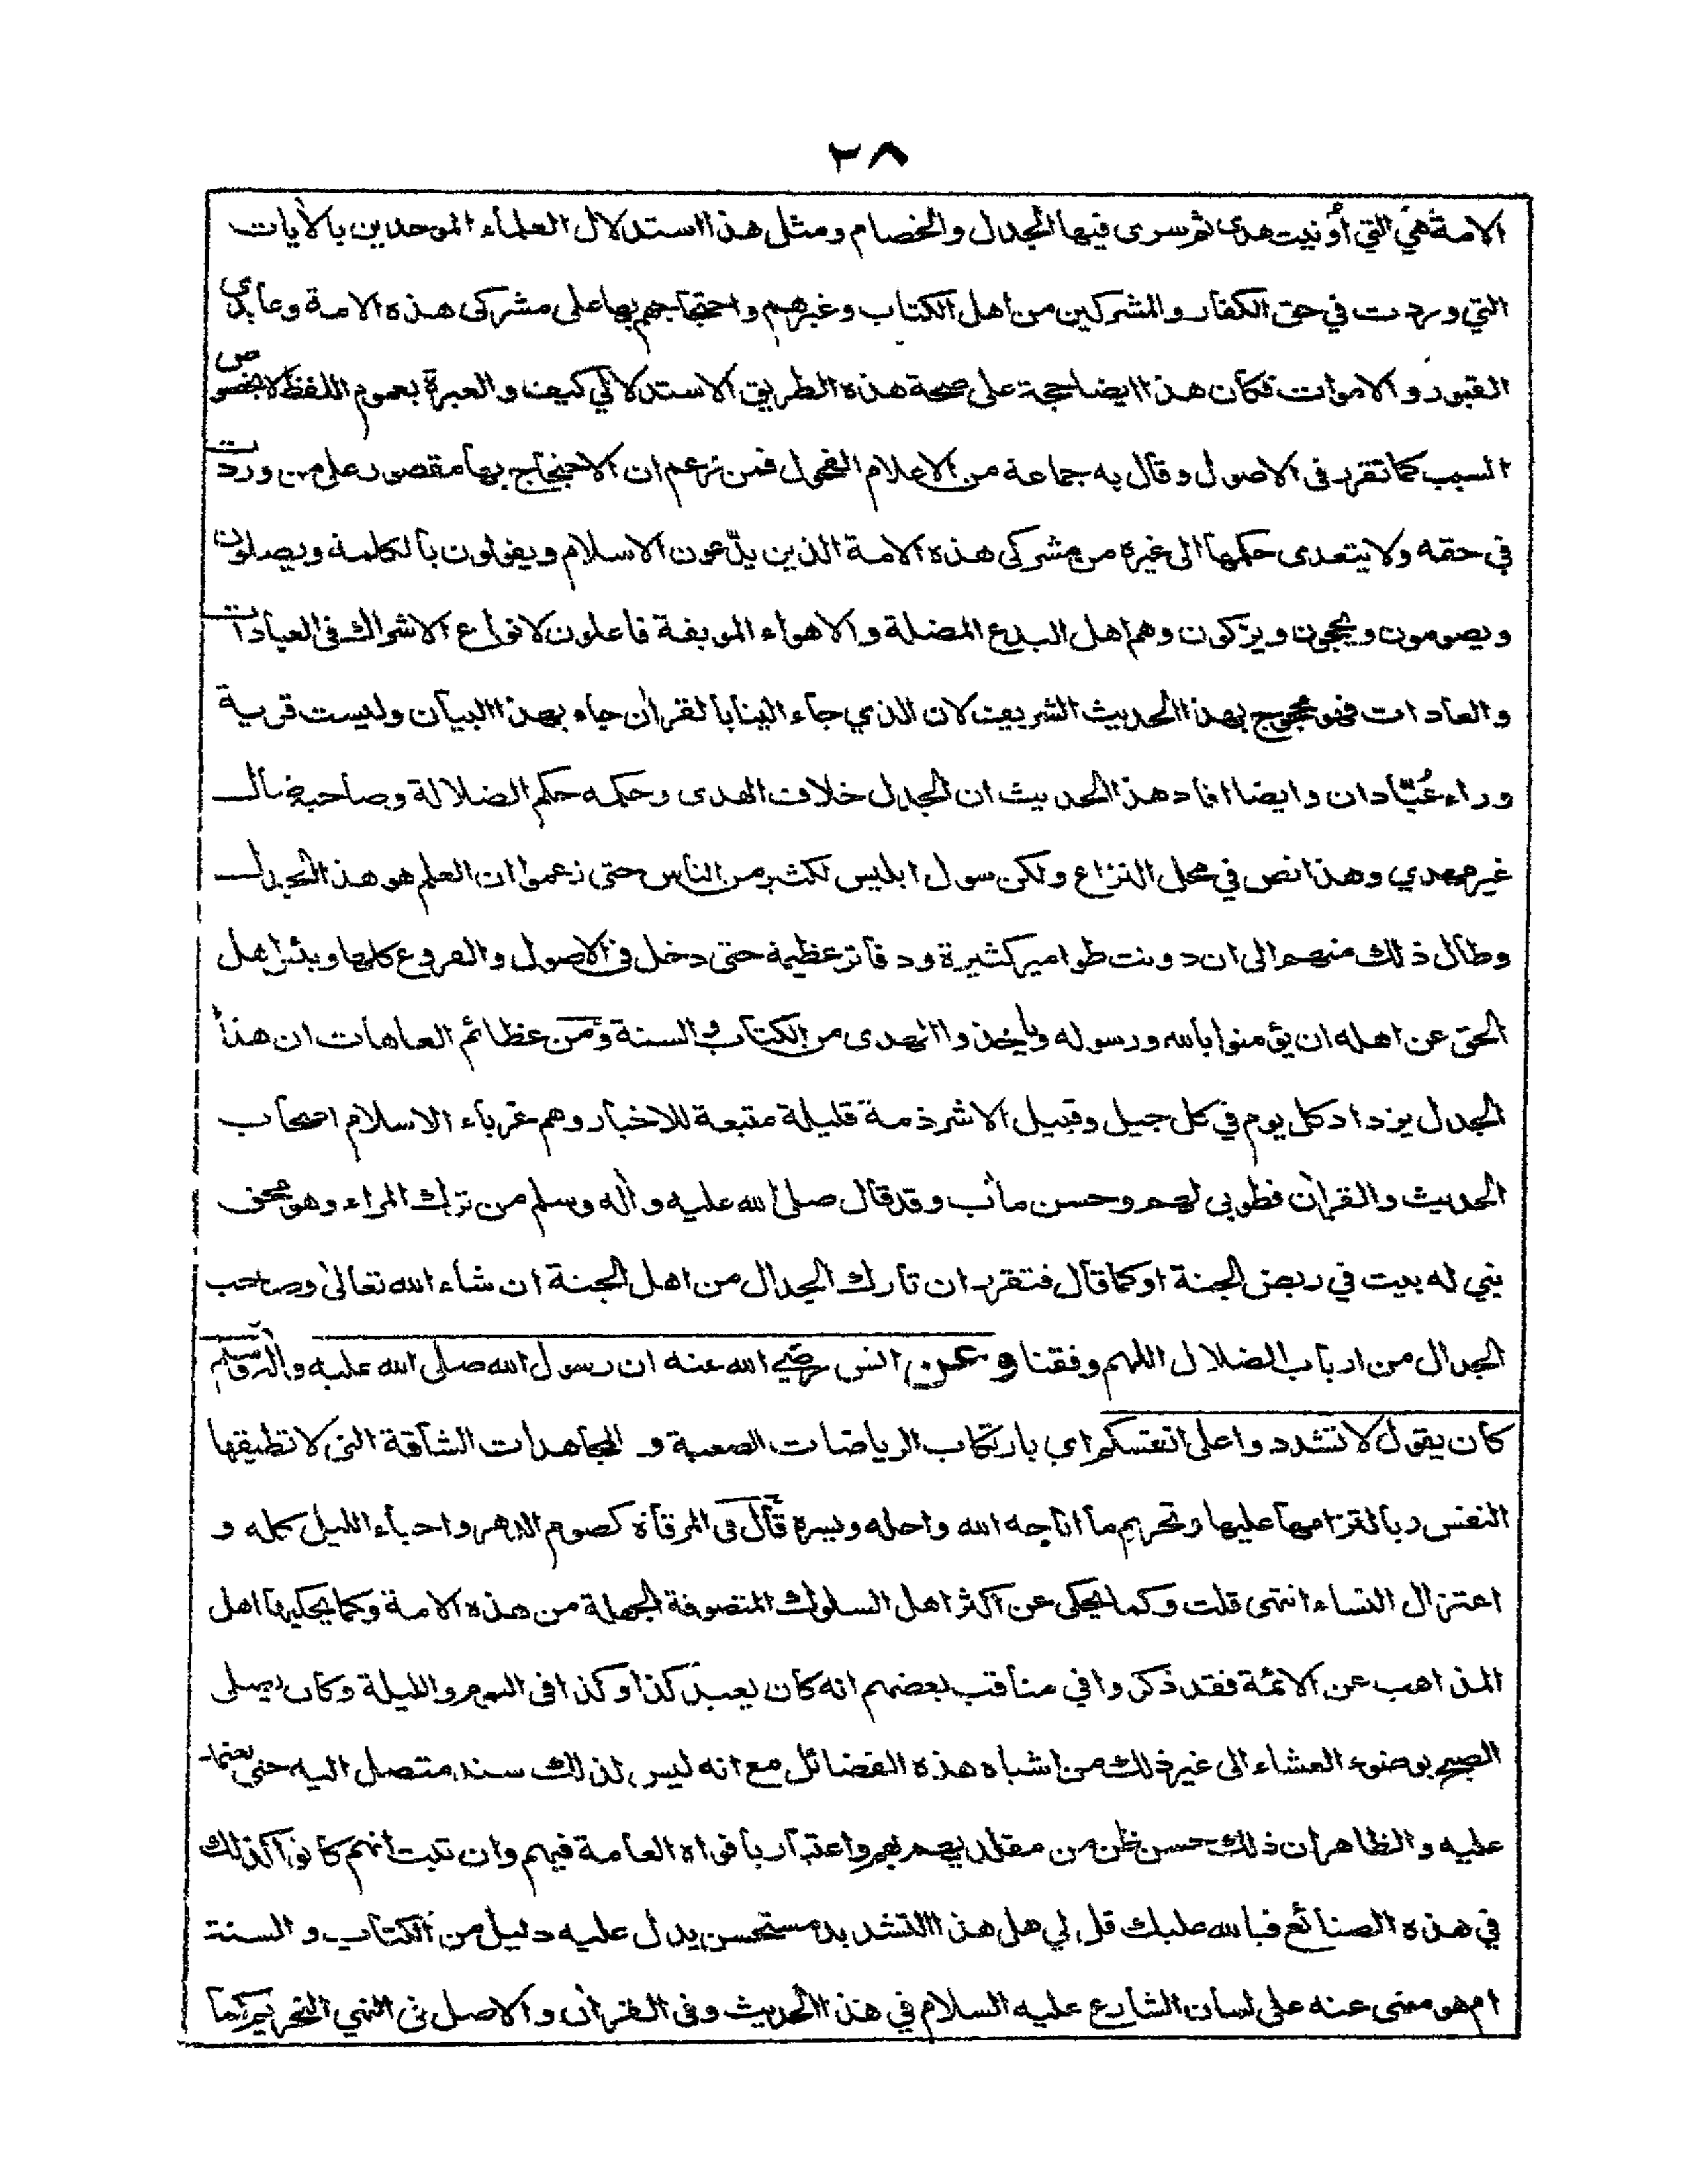 ٢٨
الامة هي التي أوتيت هدى ثم سرى فيها الجدل والخصام ومثل هذا استدلال العلماء الموحدين بالآيات
التي وردت في حق الكفار والمشركين من اهل الكتاب وغيرهم واحتجاجهم بها على مشركى هذه الامة وعابدى
القبور والاموات فكان هذا ايضا حجة على صحة هذه الطريق الاستدلالي كيف والعبرة بعموم اللفظ لا بخصوص
السبب كما تقرر فى الاصول وقال به جماعة من الاعلام الفحول فمن زعم ان الاحتجاج بها مقصور على من وردت
في حقه ولا يتعدى حكمها الى غيره من مشركى هذه الامة الذين يدّعون الاسلام ويقولون بالكلمة ويصلون
ويصومون ويحجون ويزكون وهم اهل البدع المضلة والاهواء الموبقة فاعلون لانواع الاشراك فى العبادات
والعادات فهو محجوج بهذا الحديث الشريف لان الذي جاء الينا بالقرآن جاء بهذا البيان وليست قرية
وراء عُبّادان وايضا افاد هذا الحديث ان الجدل خلاف الهدى وحكمه حكم الضلالة وصاحبه ضال
غير مهدي وهذا نص في محل النزاع ولكن سول ابليس لكثير من الناس حتى زعموا ان العلم هو هذا الجدل
وطال ذلك منهم الى ان دونت طوامير كثيرة ودفاتر عظيمة حتى دخل فى الاصول والفروع كلها ويئس اهل
الحق عن اهله ان يؤمنوا بالله ورسوله ويأخذوا الهدى من الكتاب والسنة ومن عظائم العاهات ان هذا
الجدل يزداد كل يوم في كل جيل وقبيل الا شرذمة قليلة متبعة للاخبار وهم غرباء الاسلام اصحاب
الحديث والقرآن فطوبى لهم وحسن مآب وقد قال صلى الله عليه وآله وسلم من ترك المراء وهو محق
بني له بيت في ربض الجنة او كما قال فتقرر ان تارك الجدال من اهل الجنة ان شاء الله تعالى وصاحب
الجدال من ارباب الضلال اللهم وفقنا وعن انس رضي الله عنه ان رسول الله صلى الله عليه وآله وسلم
كان يقول لا تشددوا على انفسكم اي بارتكاب الرياضات الصعبة و المجاهدات الشاقة التى لا تطيقها
النفس وبالتزامها عليها وتحريم ما اباحه الله واحله ويسره قال فى المرقاة كصوم الدهر واحياء الليل كله و
اعتزال النساء انتهى قلت وكما يحكى عن اكثر اهل السلوك المتصوفة الجهلة من هذه الامة وكما يحكيها اهل
المذاهب عن الائمة فقد ذكروا في مناقب بعضهم انه كان يعبد كذا وكذا فى اليوم والليلة وكان يصلى
الصبح بوضوء العشاء الى غير ذلك من اشباه هذه الفضائل مع انه ليس لذلك سند متصل اليه حتى يعتمد
عليه والظاهر ان ذلك حسن ظن من مقلديهم بهم واعتبار بافواه العامة فيهم وان ثبت انهم كانوا كذلك
في هذه الصنائع فبالله عليك قل لي هل هذا التشديد مستحسن يدل عليه دليل من الكتاب والسنة
ام هو منهى عنه على لسان الشارع عليه السلام في هذا الحديث وفى القرآن والاصل فى النهي التحريم كما